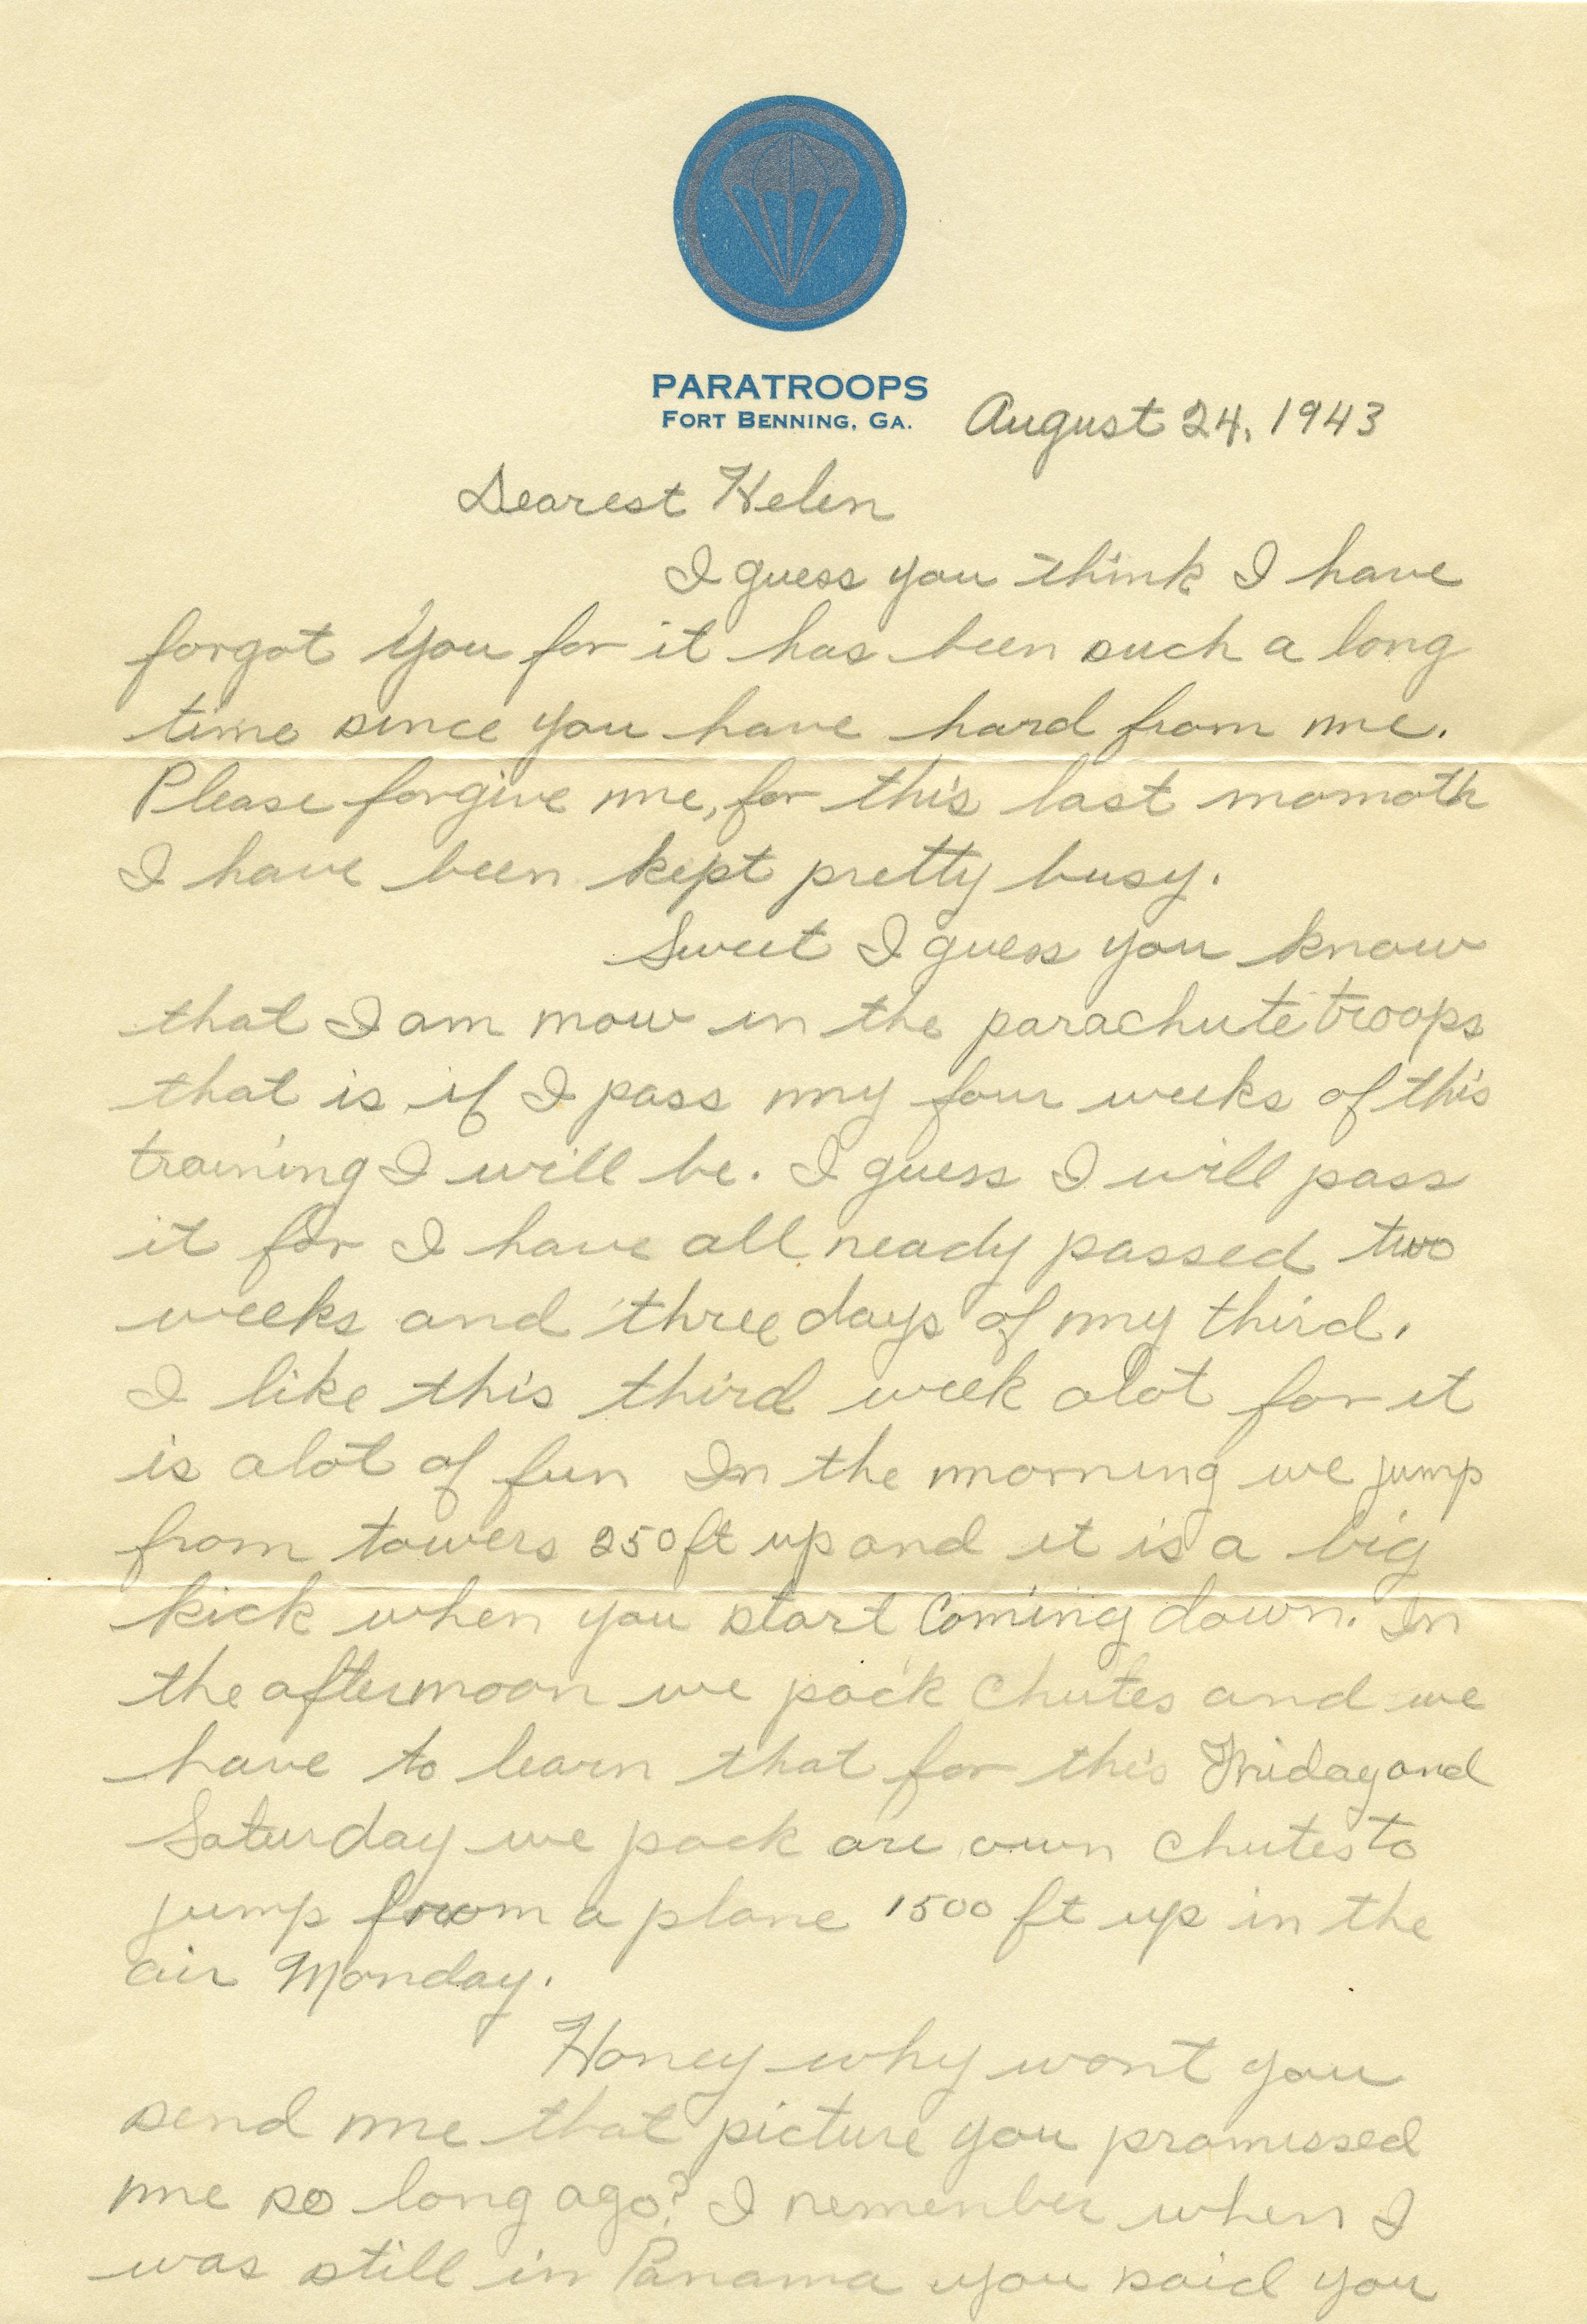 PARATROOPS
FORT BENNING, GA.
August 24, 1943
Dearest Helen
I guess you think I have
forgot you for it has been such a long
time since you have hard from me.
Please forgive me, for this last momoth
I have been kept pretty busy.
Sweet I guess you know
that I am now in the parachute troops
that is if I pass my four weeks of this
training I will be. I guess I will pass
it for I have all ready passed two
weeks and three days of my third.
I like this third week alot for it
is alot of fun In the morning we jump
from towers 250 ft up and it is a big
kick when you start coming down. In
the afternoon we pack chutes and we
have to learn that for this Friday and
Saturday we pack are own chutes to
jump from a plane 1500 ft up in the
air Monday.
Honey why wont you
send me that picture you promissed
me so long ago? I remenber when I
was still in Panama you said you